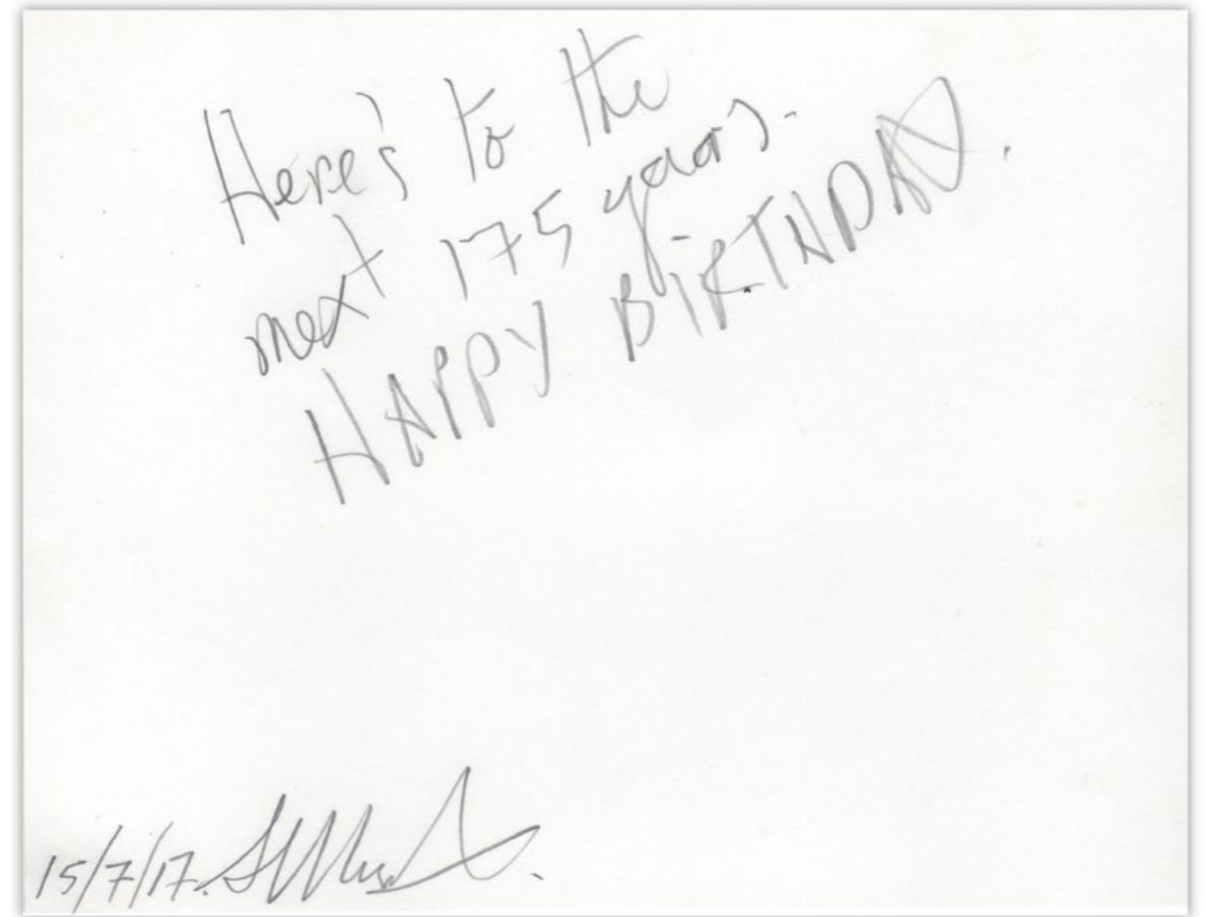 Here's to the
next 175 years.
HAPPY BiRTHDAY.
15/7/17.